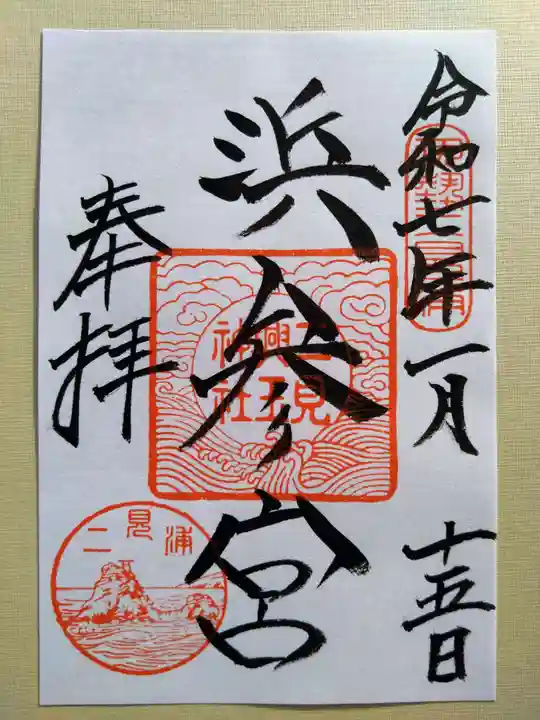 令和七年一月十五日
浜参宮
奉拝
二見興玉神社
二見浦